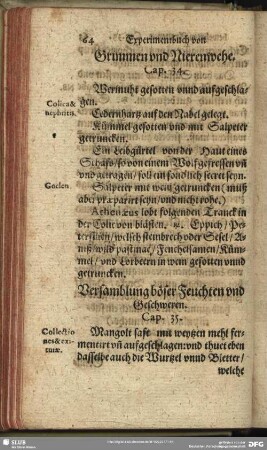 64 Experimentbuch von
Grimmen vnd Nierenwehe.
Cap. 34.
Colica &
nephritis.
Wermuht gesotten vnnd auffgeschla-
gen.
Cedernhartz auff den Nabel gelegt.
Kümmel gesotten vnd mit Salpeter
getruncken.
Ein Leibgürtel von der Haut eines
Schafs / so von einem Wolf gefressen vñ
vnd getragen / soll ein sondlich secret seyn.
Goelen.
Salpeter mit wein getruncken (muß
aber præparirt seyn / vnd nicht rohe.)
lobt folgenden Tranck in
der Colic von blästen. Eppich / Pe-
tersilien / welsch steinbrech oder Sesel / A-
niß / wild pastinac / Fenchelsamen / Küm-
mel / vnd Lorbeern in wein gesotten vnnd
getruncken.
Versamblung böser Feuchten vnd
Geschweren.
Cap. 35.
Collectio
nes & exi-
turæ.
Mangolt saft mit weytzen mehl fer-
mentirt vñ auffgeschlagen: vnd thuet eben
dasselbe auch die Wurtzel vnnd Bletter /
welche
SLUB
DFG